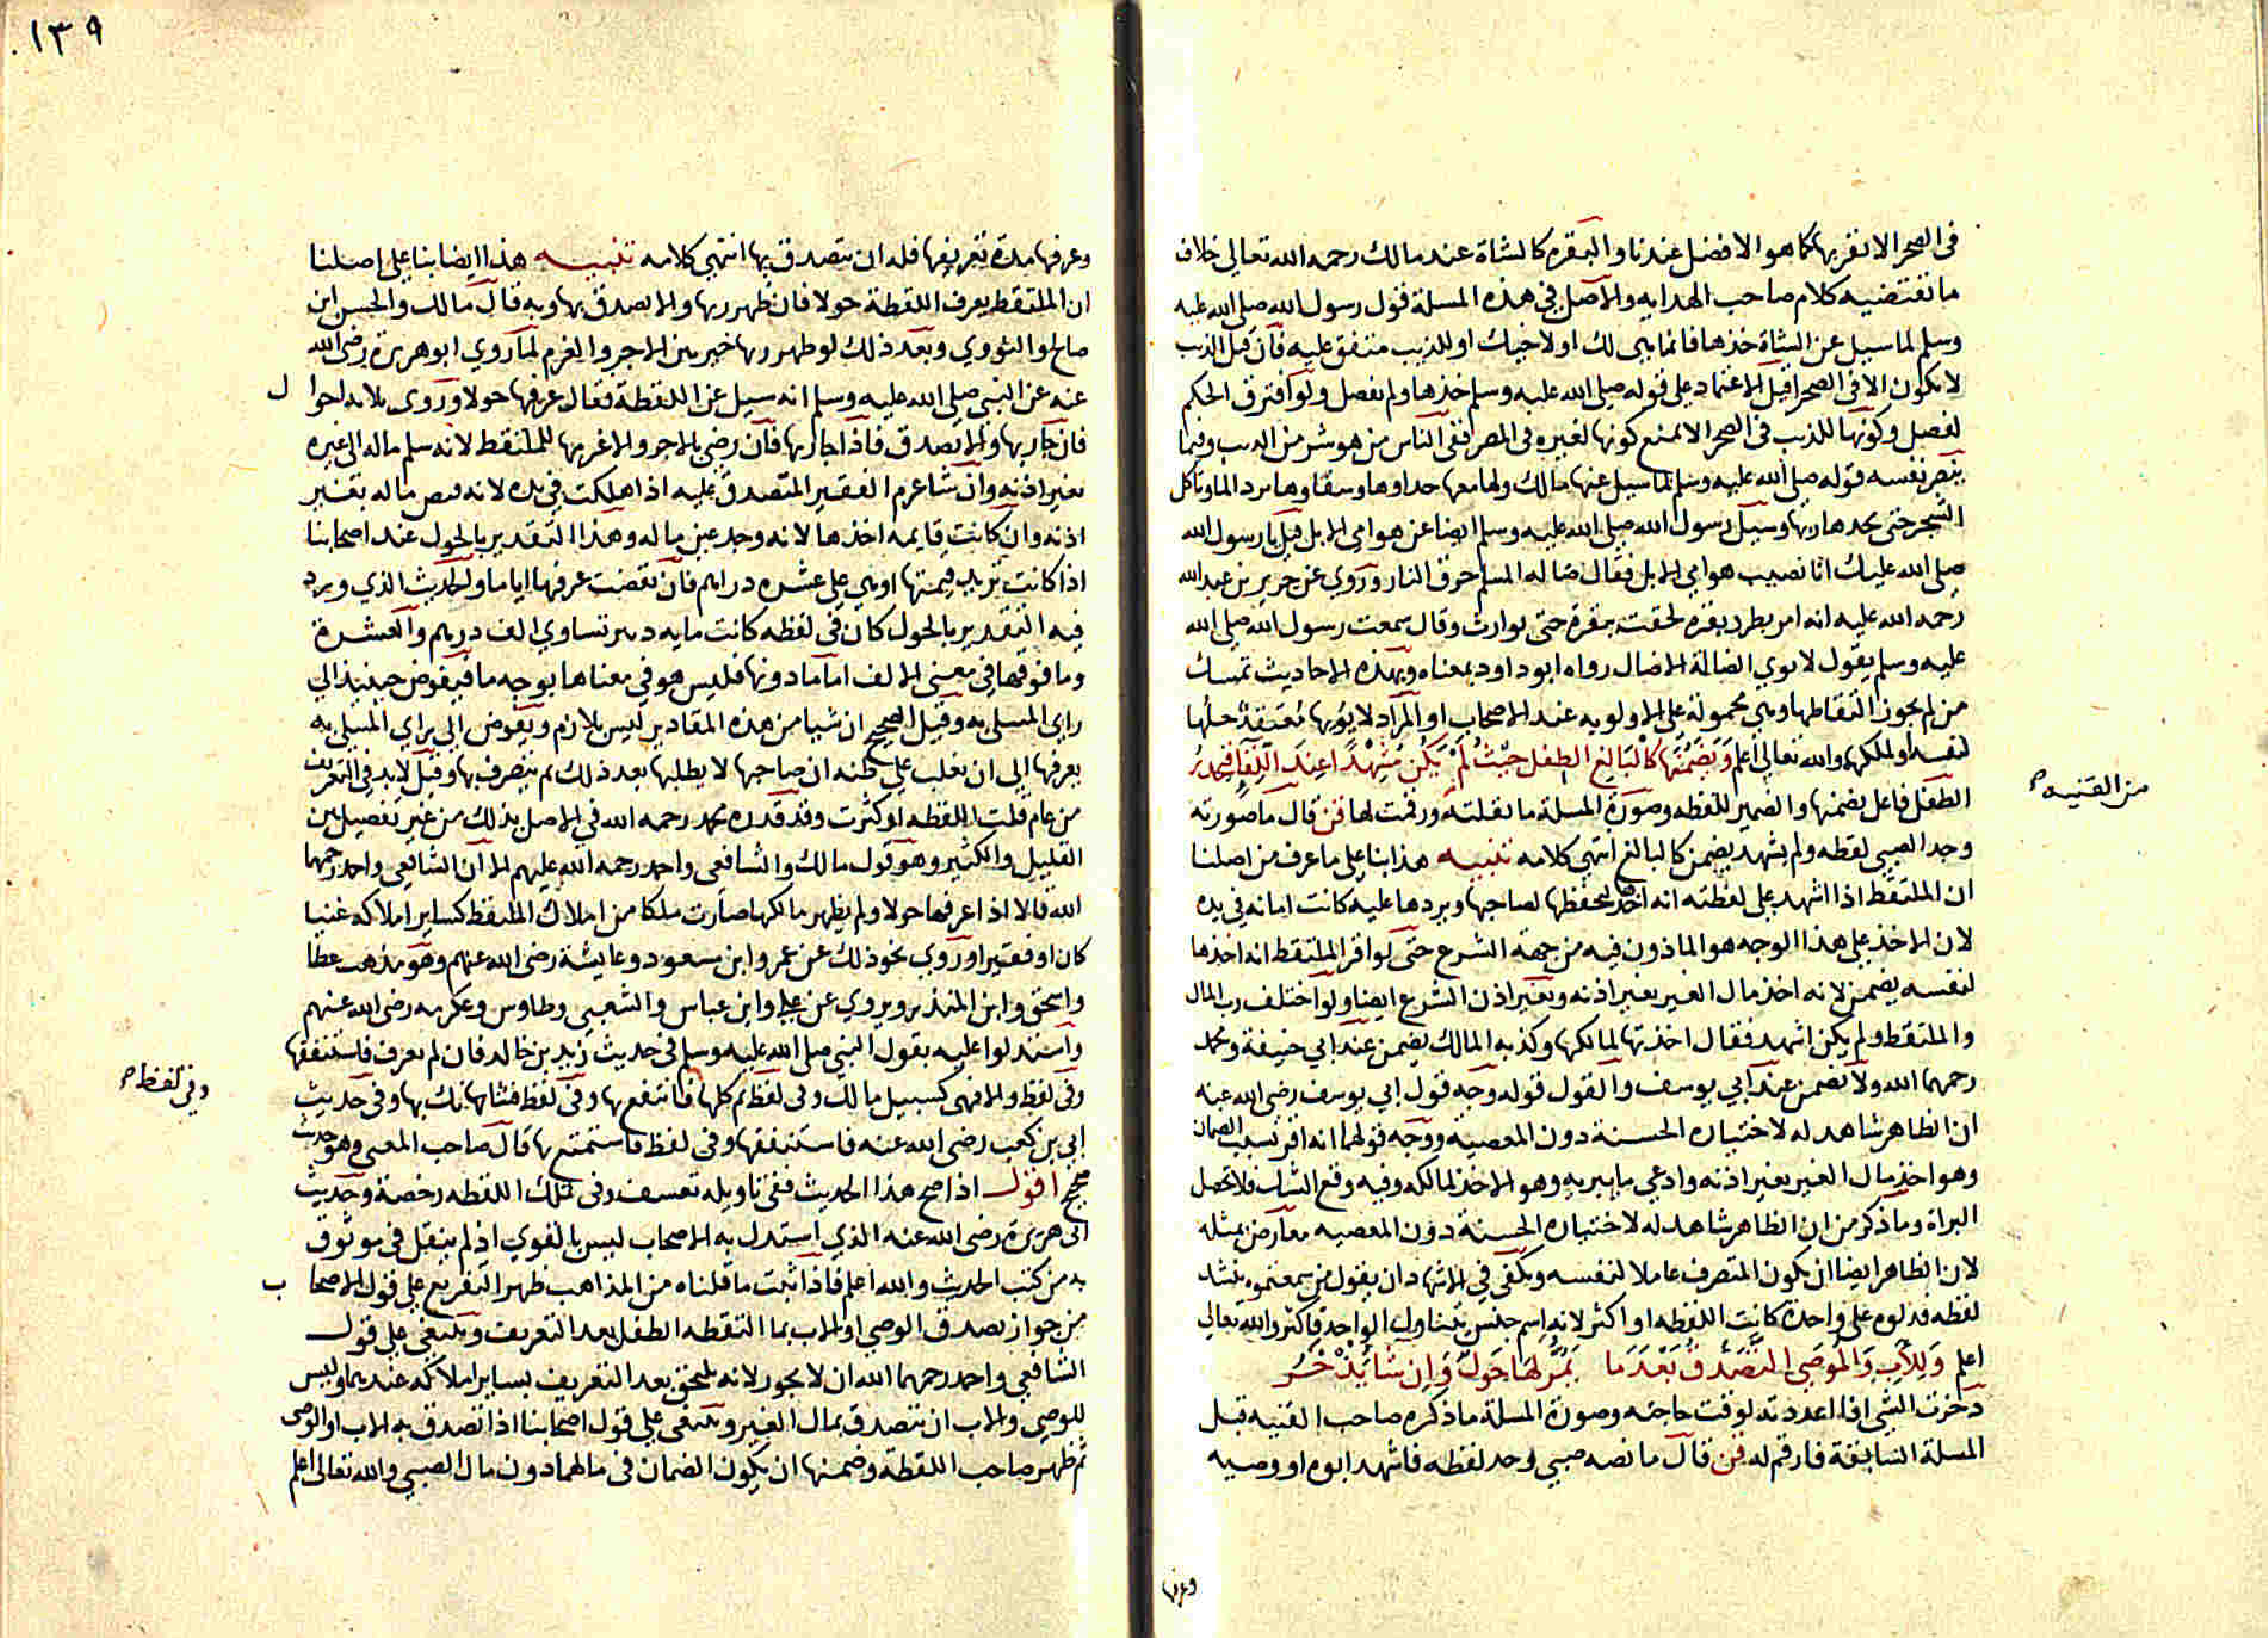 فى الصحرا لا نقربها كما هو الافضل عندنا والبقره كالشاة عند مالك رحمه الله تعالى خلاف
ما تقتضيه كلام صاحب الهدايه والاصل فى هذه المسلة قول رسول الله صلى الله عليه
وسلم لما سيل عن الشاة خذها فانما هى لك او لاخيك او للذيب متفق عليه فان قيل الذيب
لا تكون الا فى الصحرا قيل الاعتماد على قوله صلى الله عليه وسلم خذها ولم يفصل ولو افترق الحكم
لفصل وكونها للذيب فى الصحرا لا يمنع كونها لغيره فى المصر ففى الناس من هو شر من الديب وفيما
قوله صلى الله عليه وسلم لما سيل عنها مالك ولها معها حداوها وسقاوها ترد الما وتاكل
الشجر حتى يجدها ربها وسيل رسول الله صلى الله عليه وسلم ايضا عن هوامى الابل قيل يا رسول الله
صلى الله عليك انا نصيب هوامى الابل فقال ضاله المسلم حرق النار وروى عن جرير بن عبد الله
رحمه الله عليه انه امر بطرد بقره لحقت ببقرة حتى توارت وقال سمعت رسول الله صلى الله
عليه وسلم يقول لا يوى الضالة الا ضال رواه ابو داود بمعناه وبهذه الاحاديث تمسك
من لم يجوز التقاطها وهى محمولة على الاولويه عند الاصحاب او المراد لا يؤيها مُعتقدٌ حلها
لنفسه او لملكها والله تعالى اعلم وَيَضْمَنُها كالبَالِغ الطفل حيْثُ لَمْ يَكنْ مُشْهِدًا عِندَ
الطفل فاعل يضمنها والضمير للقطه وصورة المسلة ما نقلته ورقمت لها قن قال ما صورته
من القنيه
وجد الصبى لقطه ولم يشهد يضمن كالبالغ انتهى كلامه تنبيه هذا بنا على ما عرف من اصلنا
ان الملتقط اذا اشهد على لقطته انه اخذها ليحفظها لصاحبها ويردها عليه كانت امانه فى يده
لان الاخذ على هذا الوجه هو الماذون فيه من جهة الشرع حتى لو اقر الملتقط انه اخذها
لنفسه يضمن لانه اخذ مال الغير بغير اذنه وبغير اذن الشرع ايضا ولو اختلف رب المال
والملتقط ولم يكن اشهد فقال اخذتها لمالكها وكذبه المالك يضمن عند ابى حنيفة ومحمد
رحمهما الله ولا يضمن عند ابى يوسف والقول قوله وجه قول ابى يوسف رضى الله عنه
ان الظاهر شاهد له لاختياره الحسنة دون المعصية ووجه قولهما انه اقر بسبب الضمان
وهو اخذ مال الغير بغير اذنه وادعى ما يبريه وهو الاخذ لمالكه وفيه وقع الشك فلا تحصل
البراة وما ذكر من ان الظاهر شاهد له لاختياره الحسنة دون المعصيه معارض بمثله
لان الظاهر ايضا ان يكون المتصرف عاملا لنفسه ويكفى فى الاشهاد ان يقول من سمعتموه ينشد
لقطه فدلوه على واحدة كانت اللقطه او اكثر لانه اسم جنس يتناول الواحد فاكثر والله تعالى
اعلم وَلِلأبِ وَالوَصِى التَصَدقُ بَعْدَ مَا يَمُرُّ لَهَا حَوْلٌ وَإن شا يَذْخَرُ
دخرت الشى اذا اعددته لوقت حاجته وصورة المسلة ما ذكره صاحب القنيه قبل
المسلة السابقة فارقم له قن قال ما نصه صبى وجد لقطه فاشهد ابوه او وصيه
وعرفها
١٣٩
وعرفها مدة تعريفها فله ان يتصدق بها انتهى كلامه تنبيه هذا ايضا بنا على اصلنا
ان الملتقط يعرف اللقطة حولا فان ظهر ربها والا تصدق بها وبه قال مالك والحسن ابن
صالح والثورى وبعد ذلك لو ظهر ربها خير بين الاجر والغرم لما روى ابو هريرة رضى الله
عنه عن النبى صلى الله عليه وسلم انه سيل عن اللقطة فقال عرفها حولا وروى ثلاثه احوا ل
فان جا ربها والا تصدق فاذا جا ربها فان رضى بالاجر والا غرمها للملتقط لانه سلم ماله الى غيره
بغير اذنه وان شا غرم الفقير المتصدق عليه اذا هلكت فى يده لانه قبض ماله بغير
اذنه وان كانت قايمه اخذها لانه وجد عين ماله وهذا التقدير بالحول عند اصحابنا
اذا كانت تزيد قيمتها او هى على عشره دراهم فان نقصت عرفها اياما والحديث الذي ورد
فيه التقدير بالحول كان فى لقطه كانت مايه دينر تساوى الف درهم والعشرة
وما فوقها فى معنى الالف اما ما دونها فليس هو فى معناها بوجه ما فيفوض حينيذ الى
راى المبتلى به وقيل الصحيح ان شيا من هذه المقادير ليس بلازم ويفوض الى راى المبتلى به
يعرفها الى ان يغلب على ظنه ان صاحبها لا يطلبها بعد ذلك ثم يتصرف بها وقيل لا بد فى التعريف
من عام قلت اللقطه او كثرت وقد قدره محمد رحمه الله فى الاصل بذلك من غير تفصيل بين
القليل والكثير وهو قول مالك والشافعى واحمد رحمه الله عليهم الا ان الشافعى واحمد رحمهما
الله قالا اذا عرفها حولا ولم يظهر مالكها صارت ملكا من املاك الملتقط كساير املاكه غنيا
كان او فقيرا وروى نحو ذلك عن عمر وابن مسعود وعايشة رضى الله عنهم وهو مذهب عطا
واسحق وابن المنذر ويروى عن على وابن عباس والشعبى وطاوس وعكرمه رضى الله عنهم
واستدلوا عليه بقول النبى صلى الله عليه وسلم فى حديث زيد بن خالد فان لم تعرف فاستنفقها
وفى لفظ والا فهى كسبيل مالك وفى لفظ ثم كلها فانتفع بها وفى لفظ فشانك بها وفى حديث
وفى لفظ
ابى بن كعب رضى الله عنه فاستنفقها وفى لفظ فاستمتع بها قال صاحب المغنى وهو حديث
صحيح اقول اذا صح هذا الحديث ففى تاويله تعسف وفى تملك اللقطه رخصة وحديث
ابى هريرة رضى الله عنه الذي استدل به الاصحاب ليس بالقوى اذ لم ينقل فى موثوق
به من كتب الحديث والله اعلم فاذا ثبت ما قلناه من المذاهب ظهر التفريع على قول الاصحا ب
من جواز تصدق الوصى او الاب بما التقطه الطفل بعد التعريف وينبغى على قول
الشافعى واحمد رحمهما الله ان لا يجوز لانه يلتحق بعد التعريف بساير املاكه عندهما وليس
للوصى والاب ان يتصدق بمال الغير وينبغى على قول اصحابنا اذا تصدق به الاب او الوصى
ثم ظهر صاحب اللقطة وضمنها ان يكون الضمان فى مالهما دون مال الصبى والله تعالى اعلم